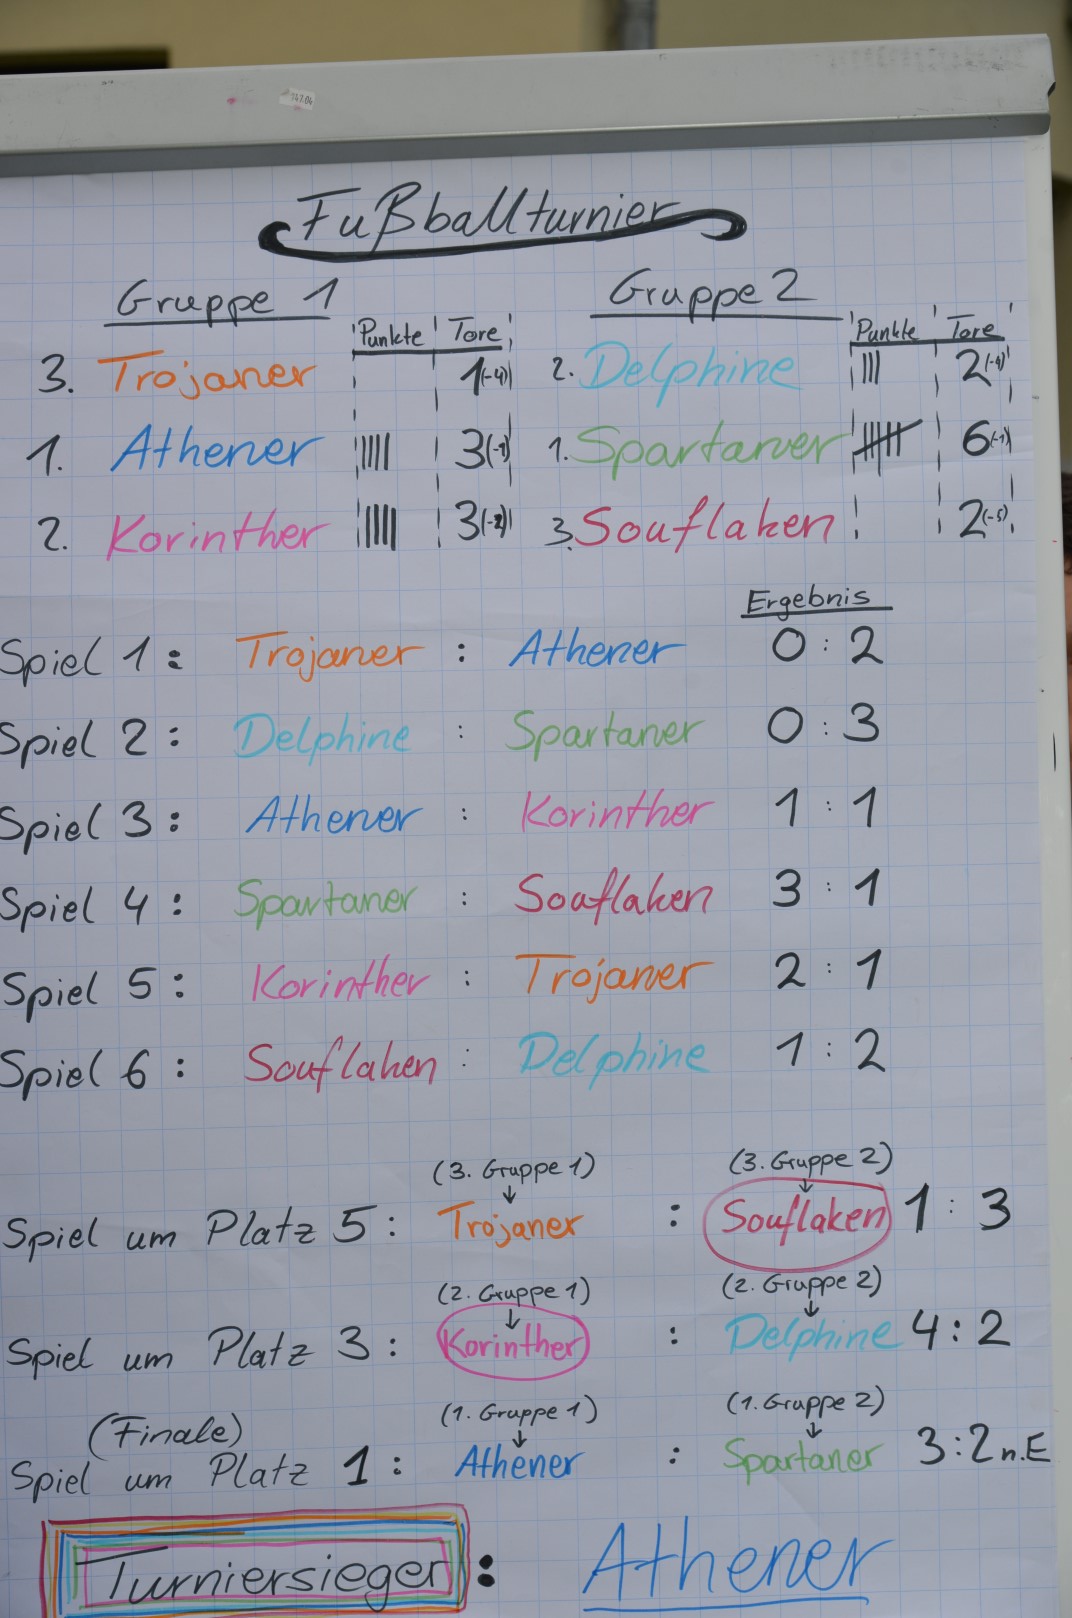 147.04
Fußballturnier
Gruppe 1 Gruppe 2
Punkte Tore Punkte Tore
3. Trojaner 1(-4) 2. Delphine ||| 2(-4)
1. Athener |||| 3(-1) 1. Spartaner 6(-1)
2. Korinther |||| 3(-2) 3. Souflaken 2(-5)
Ergebnis
Spiel 1: Trojaner : Athener 0 : 2
Spiel 2: Delphine : Spartaner 0 : 3
Spiel 3: Athener : Korinther 1 : 1
Spiel 4: Spartaner : Souflaken 3 : 1
Spiel 5: Korinther : Trojaner 2 : 1
Spiel 6: Souflaken : Delphine 1 : 2
(3. Gruppe 1) (3. Gruppe 2)
Spiel um Platz 5: Trojaner : Souflaken 1 : 3
(2. Gruppe 1) (2. Gruppe 2)
Spiel um Platz 3: Korinther : Delphine 4 : 2
(Finale) (1. Gruppe 1) (1. Gruppe 2)
Spiel um Platz 1: Athener : Spartaner 3:2 n.E
Turniersieger: Athener